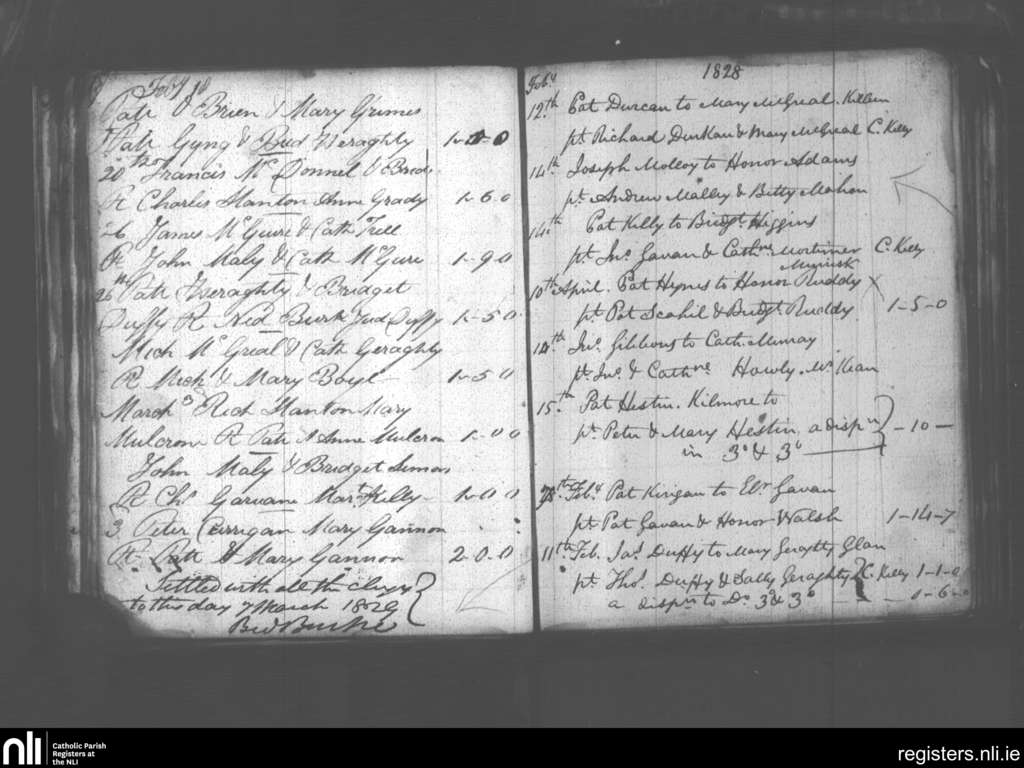 Feby 18
Patk O Brien & Mary Grimes
Patk Gyng & Brid Geraghty 1-0-0
20th Francis Mc Donnel & Brid
R Charles Stanton Anne Grady 1-6-0
26 James McGuire & Cath
R John Maly & Cath McGuire 1-9-0
26th Patk Geraghty & Bridget
Duffy R Ned Burk Jud Duffy 1-5-0
Mich McGreal & Cath Geraghty
R Mich & Mary Boyl 1-5-0
March 3 Rich Stanton Mary
Mulcrone R Patk & Anne Mulcron 1-0-0
John Maly & Bridget Simons
R Chs Garvane Mart Kelly 1-0-0
3 Peter Carrigan Mary Gannon
R Patk & Mary Gannon 2-0-0
Settled with all the clergy
to this day 7 March 1829
Bw Burke
Feby 1828
12th Pat Durcan to Mary McGreal. Killeen
pt Richard Durkan & Mary McGreal C. Kelly
14th Joseph Molloy to Honor Adams
pt Andrew Malley & Betty Mahon
14th Pat Killy to Bridgt Higgins
pt Jno Gavan & Cathne Mortimer C. Kelly
Murrisk
10th April. Pat Hynes to Honor Ruddy X
pt Pat Scahil & Bridgt Ruddy 1-5-0
14th Jno Gibbons to Cath. Murray
pt Jno & Cathne Hawly. McKean
15th Pat Hestin. Kilmore to
pt Peter & Mary Hestin a dispn - 10 -
in 3o & 3o
28th Feby Pat Kirigan to Elr Gavan
pt Pat Gavan & Honor Walsh 1-14-7
11th Feb. Jas Duffy to Mary Geraghty Glan
pt Thos Duffy & Sally Geraghty C. Kelly 1-1-0
a dispn to Do 3o & 3o - - 0-6-0
nli
Catholic Parish
Registers at
the NLI
registers.nli.ie